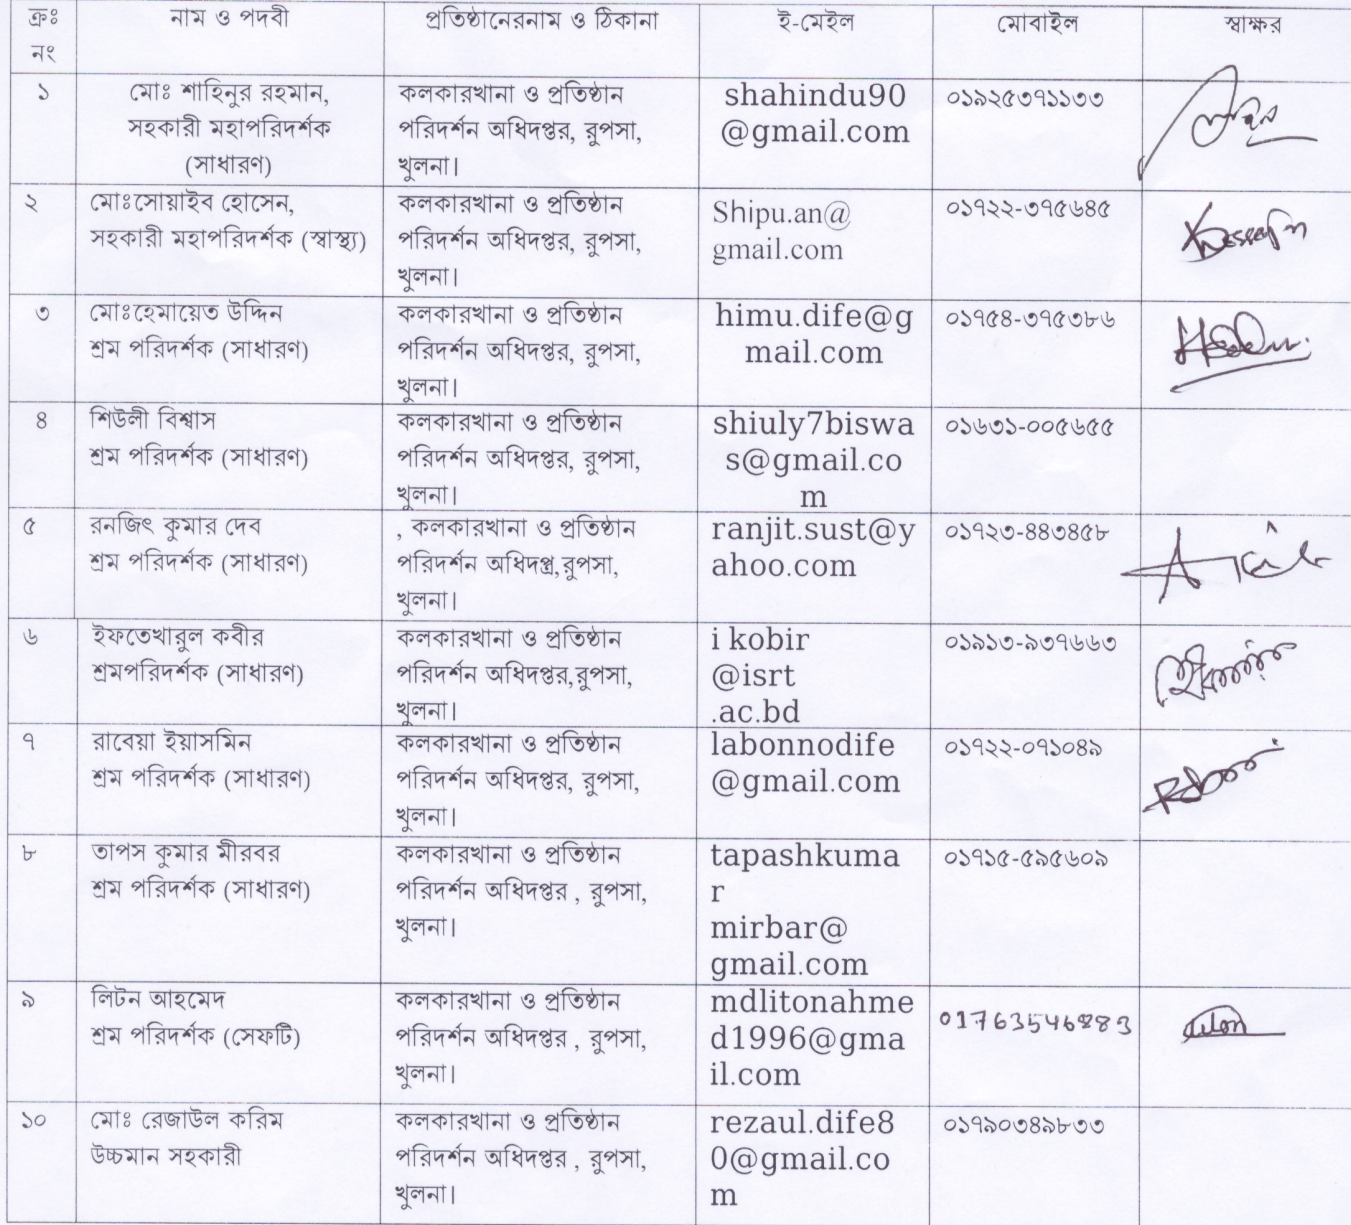 ক্রঃ নং | নাম ও পদবী | প্রতিষ্ঠানেরনাম ও ঠিকানা | ই-মেইল | মোবাইল | স্বাক্ষর
১
মোঃ শাহিনুর রহমান,
সহকারী মহাপরিদর্শক
(সাধারণ)
কলকারখানা ও প্রতিষ্ঠান
পরিদর্শন অধিদপ্তর, রুপসা,
খুলনা।
shahindu90
@gmail.com
০১৯২৫৩৭১১৩৩
২
মোঃসোয়াইব হোসেন,
সহকারী মহাপরিদর্শক (স্বাস্থ্য)
কলকারখানা ও প্রতিষ্ঠান
পরিদর্শন অধিদপ্তর, রুপসা,
খুলনা।
Shipu.an@
gmail.com
০১৭২২-৩৭৫৬৪৫
৩
মোঃহেমায়েত উদ্দিন
শ্রম পরিদর্শক (সাধারণ)
কলকারখানা ও প্রতিষ্ঠান
পরিদর্শন অধিদপ্তর, রুপসা,
খুলনা।
himu.dife@g
mail.com
০১৭৫৪-৩৭৫৩৮৬
৪
শিউলী বিশ্বাস
শ্রম পরিদর্শক (সাধারণ)
কলকারখানা ও প্রতিষ্ঠান
পরিদর্শন অধিদপ্তর, রুপসা,
খুলনা।
shiuly7biswa
s@gmail.co
m
০১৬৩১-০০৫৬৫৫
৫
রনজিৎ কুমার দেব
শ্রম পরিদর্শক (সাধারণ)
, কলকারখানা ও প্রতিষ্ঠান
পরিদর্শন অধিদপ্ত্র,রুপসা,
খুলনা।
ranjit.sust@y
ahoo.com
০১৭২৩-৪৪৩৪৫৮
৬
ইফতেখারুল কবীর
শ্রমপরিদর্শক (সাধারণ)
কলকারখানা ও প্রতিষ্ঠান
পরিদর্শন অধিদপ্তর,রুপসা,
খুলনা।
i kobir
@isrt
.ac.bd
০১৯১৩-৯৩৭৬৬৩
৭
রাবেয়া ইয়াসমিন
শ্রম পরিদর্শক (সাধারণ)
কলকারখানা ও প্রতিষ্ঠান
পরিদর্শন অধিদপ্তর, রুপসা,
খুলনা।
labonnodife
@gmail.com
০১৭২২-০৭১০৪৯
৮
তাপস কুমার মীরবর
শ্রম পরিদর্শক (সাধারণ)
কলকারখানা ও প্রতিষ্ঠান
পরিদর্শন অধিদপ্তর , রুপসা,
খুলনা।
tapashkuma
r
mirbar@
gmail.com
০১৭১৫-৫৯৫৬০৯
৯
লিটন আহমেদ
শ্রম পরিদর্শক (সেফটি)
কলকারখানা ও প্রতিষ্ঠান
পরিদর্শন অধিদপ্তর , রুপসা,
খুলনা।
mdlitonahme
d1996@gma
il.com
১০
মোঃ রেজাউল করিম
উচ্চমান সহকারী
কলকারখানা ও প্রতিষ্ঠান
পরিদর্শন অধিদপ্তর , রুপসা,
খুলনা।
rezaul.dife8
0@gmail.co
m
০১৭৯০৩৪৯৮৩৩